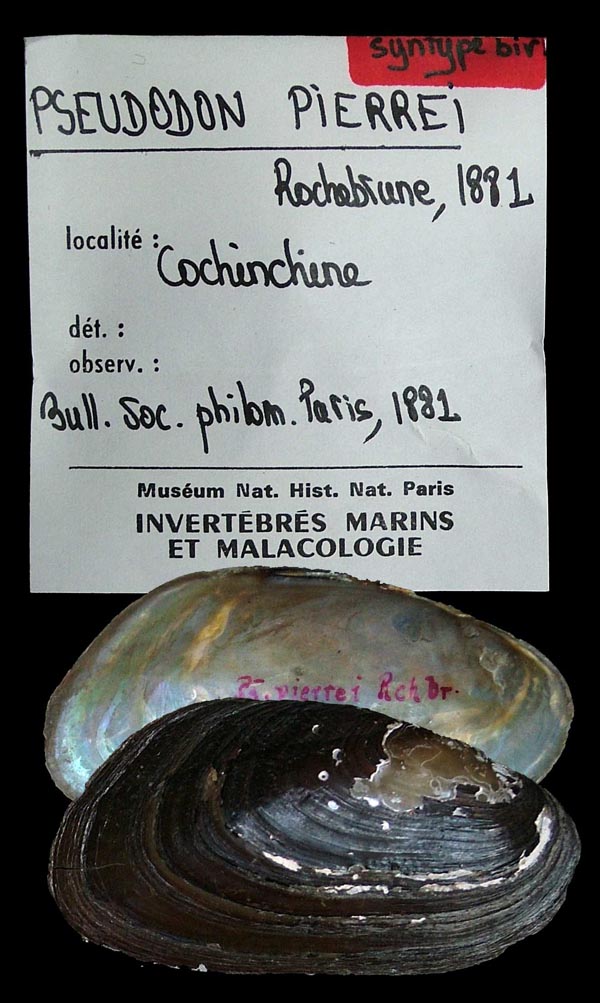 syntype biv
PSEUDODON PIERREI
Rochebrune, 1881
localité : Cochinchine
dét. :
observ. :
Bull. Soc. philom. Paris, 1881
Muséum Nat. Hist. Nat. Paris
INVERTÉBRÉS MARINS
ET MALACOLOGIE
Ps. pierrei Rchbr.